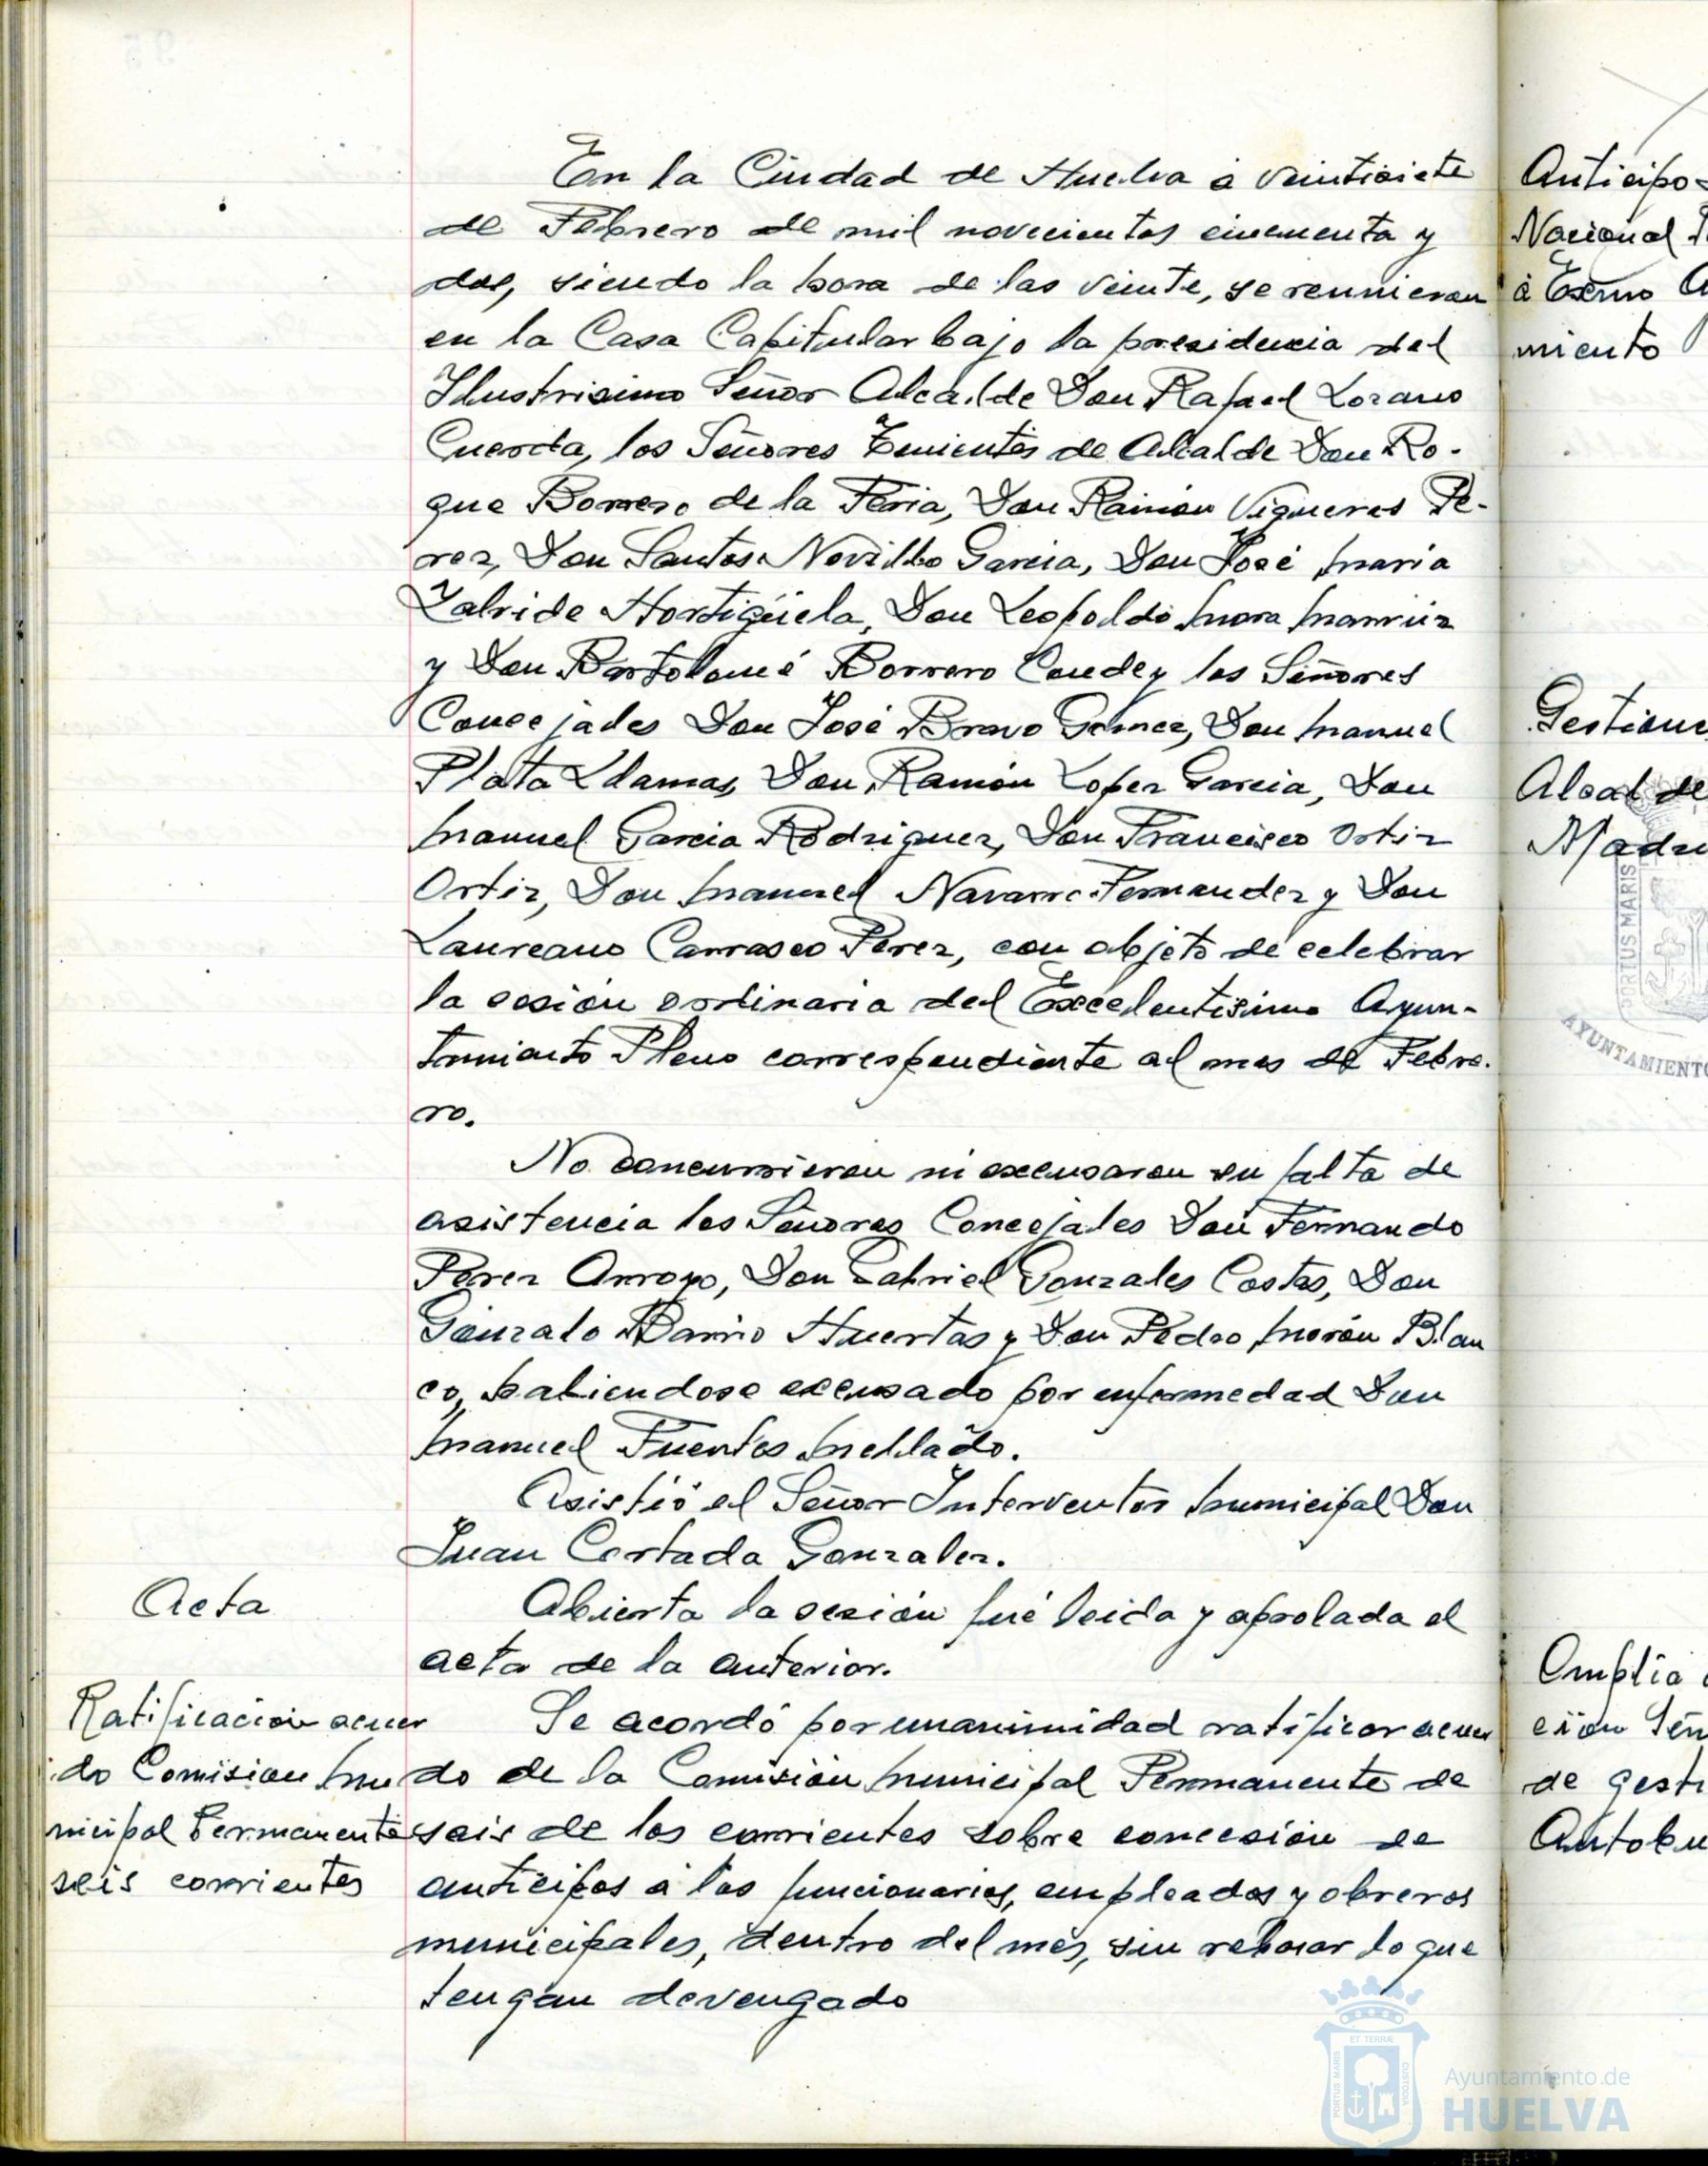 En la Ciudad de Huelva á veintisiete
de Febrero de mil novecientos cincuenta y
dos, siendo la hora de las veinte, se reunieron
en la Casa Capitular bajo la presidencia del
Ilustrisimo Señor Alcalde Don Rafael Lozano
Cuerda, los Señores Tenientes de Alcalde Don Ro-
que Borrero de la Feria, Don Ramón Vigueras Pe-
rez, Don Santos Novillo Garcia, Don José Maria
Zalvide Hortigüela, Don Leopoldo Mora
y Don Bartolomé Borrero Conde y los Señores
Concejales Don José Bravo Gomez, Don Manuel
Plata Llamas, Don Ramón Lopez Garcia, Don
Manuel Garcia Rodriguez, Don Francisco Ortiz
Ortiz, Don Manuel Navarro Fernandez y Don
Laureano Carrasco Perez, con objeto de celebrar
la sesión ordinaria del Excelentisimo Ayun-
tamiento Pleno correspondiente al mes de Febre-
ro.
No concurrieron ni excusaron su falta de
asistencia los Señores Concejales Don Fernando
Perez Arroyo, Don Gabriel Gonzales Costas, Don
Gonzalo Barrio Huertas y Don Pedro Morón Blan
co, habiendose excusado por enfermedad Don
Manuel Fuentes Mellado.
Asistió el Señor Interventor Municipal Don
Juan Cortada Gonzalez.
Acta
Abierta la sesión fué leida y aprobada el
acta de la anterior.
Ratificación acuer
do Comision Mu
nicipal Permanente
seis corrientes
Se acordó por unanimidad ratificar acuer
do de la Comisión Municipal Permanente de
seis de los corrientes sobre concesión de
anticipos á los funcionarios, empleados y obreros
municipales, dentro del mes, sin rebasar lo que
tengan devengado
Anticipo
Nacional
á Excmo A
miento
Gestione
Alcalde
Madri
PORTUS MARIS
AYUNTAMIENTO
Amplia
ción Señ
de gesti
Autobu
ET TERRÆ
PORTUS MARIS
CUSTODIA
Ayuntamiento de
HUELVA